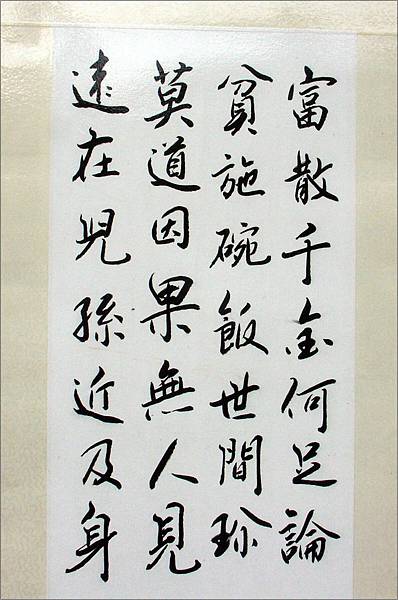 富散千金何足論
貧施碗飯世間珍
莫道因果無人見
遠在児孫近及身